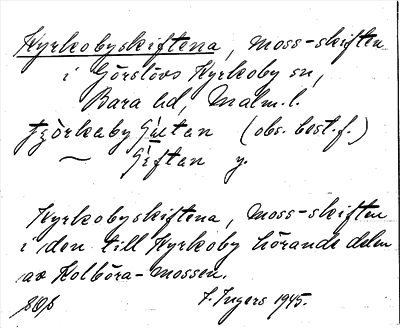 Kyrkobyskiftena, moss-skiften
i Görslövs Kyrkoby sn,
Bara hd, Malm. l.
(obs. best. f.)
~ y.
Kyrkobyskiftena, moss-skiften
i den till Kyrkoby hörande delen
av Kolböra-mossen.
I. Ingers 1945.